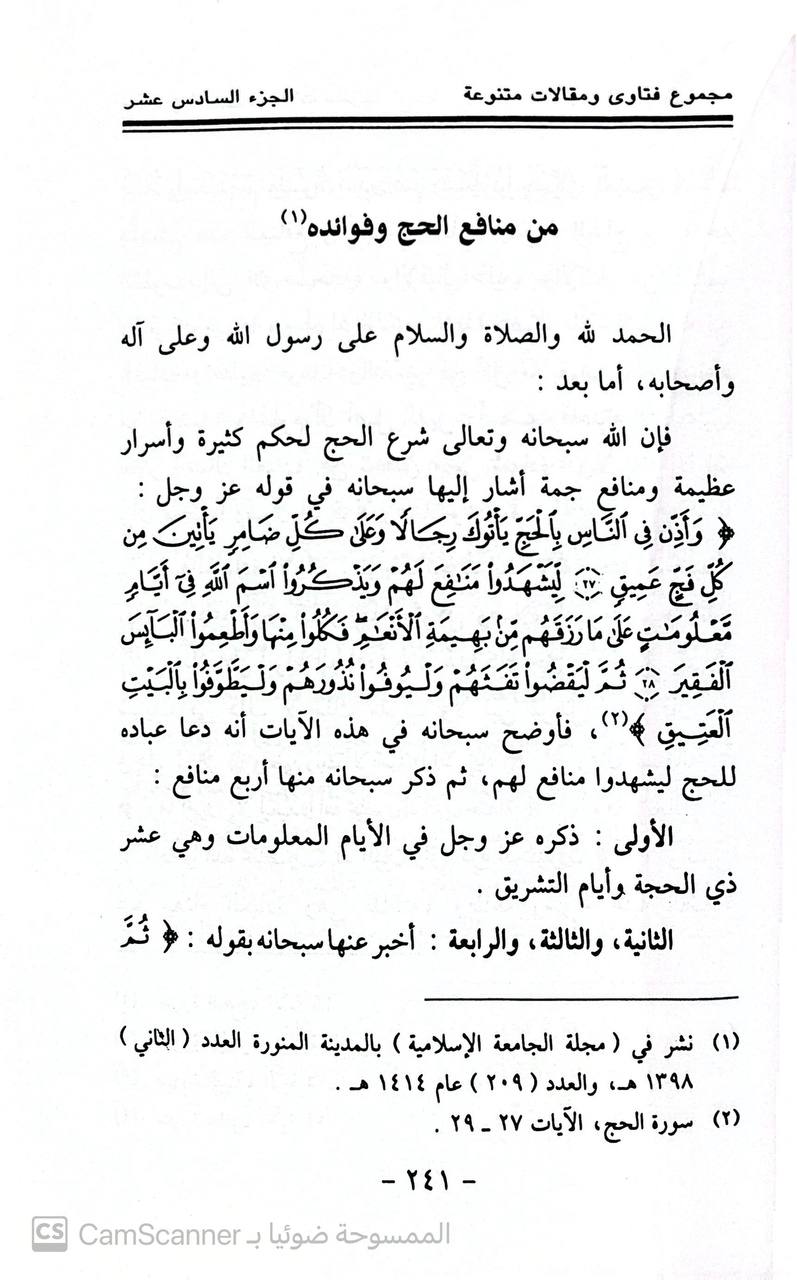 مجموع فتاوى ومقالات متنوعة الجزء السادس عشر
من منافع الحج وفوائده(١)
الحمد لله والصلاة والسلام على رسول الله وعلى آله
وأصحابه، أما بعد :
فإن الله سبحانه وتعالى شرع الحج لحكم كثيرة وأسرار
عظيمة ومنافع جمة أشار إليها سبحانه في قوله عز وجل :
﴿ وَأَذِّن فِى ٱلنَّاسِ بِٱلْحَجِّ يَأْتُوكَ رِجَالًا وَعَلَىٰ كُلِّ ضَامِرٍ يَأْتِينَ مِن
كُلِّ فَجٍّ عَمِيقٍ ﴿٢٧﴾ لِّيَشْهَدُوا۟ مَنَٰفِعَ لَهُمْ وَيَذْكُرُوا۟ ٱسْمَ ٱللَّهِ فِىٓ أَيَّامٍ
مَّعْلُومَٰتٍ عَلَىٰ مَا رَزَقَهُم مِّنۢ بَهِيمَةِ ٱلْأَنْعَٰمِ ۖ فَكُلُوا۟ مِنْهَا وَأَطْعِمُوا۟ ٱلْبَآئِسَ
ٱلْفَقِيرَ ﴿٢٨﴾ ثُمَّ لْيَقْضُوا۟ تَفَثَهُمْ وَلْيُوفُوا۟ نُذُورَهُمْ وَلْيَطَّوَّفُوا۟ بِٱلْبَيْتِ
ٱلْعَتِيقِ ﴾(٢)، فأوضح سبحانه في هذه الآيات أنه دعا عباده
للحج ليشهدوا منافع لهم، ثم ذكر سبحانه منها أربع منافع :
الأولى : ذكره عز وجل في الأيام المعلومات وهي عشر
ذي الحجة وأيام التشريق .
الثانية، والثالثة، والرابعة : أخبر عنها سبحانه بقوله : ﴿ ثُمَّ
(١) نشر في ( مجلة الجامعة الإسلامية ) بالمدينة المنورة العدد ( الثاني )
١٣٩٨ هـ، والعدد ( ٢٠٩ ) عام ١٤١٤ هـ .
(٢) سورة الحج، الآيات ٢٧ ـ ٢٩ .
– ٢٤١ –
CS CamScanner الممسوحة ضوئيا بـ